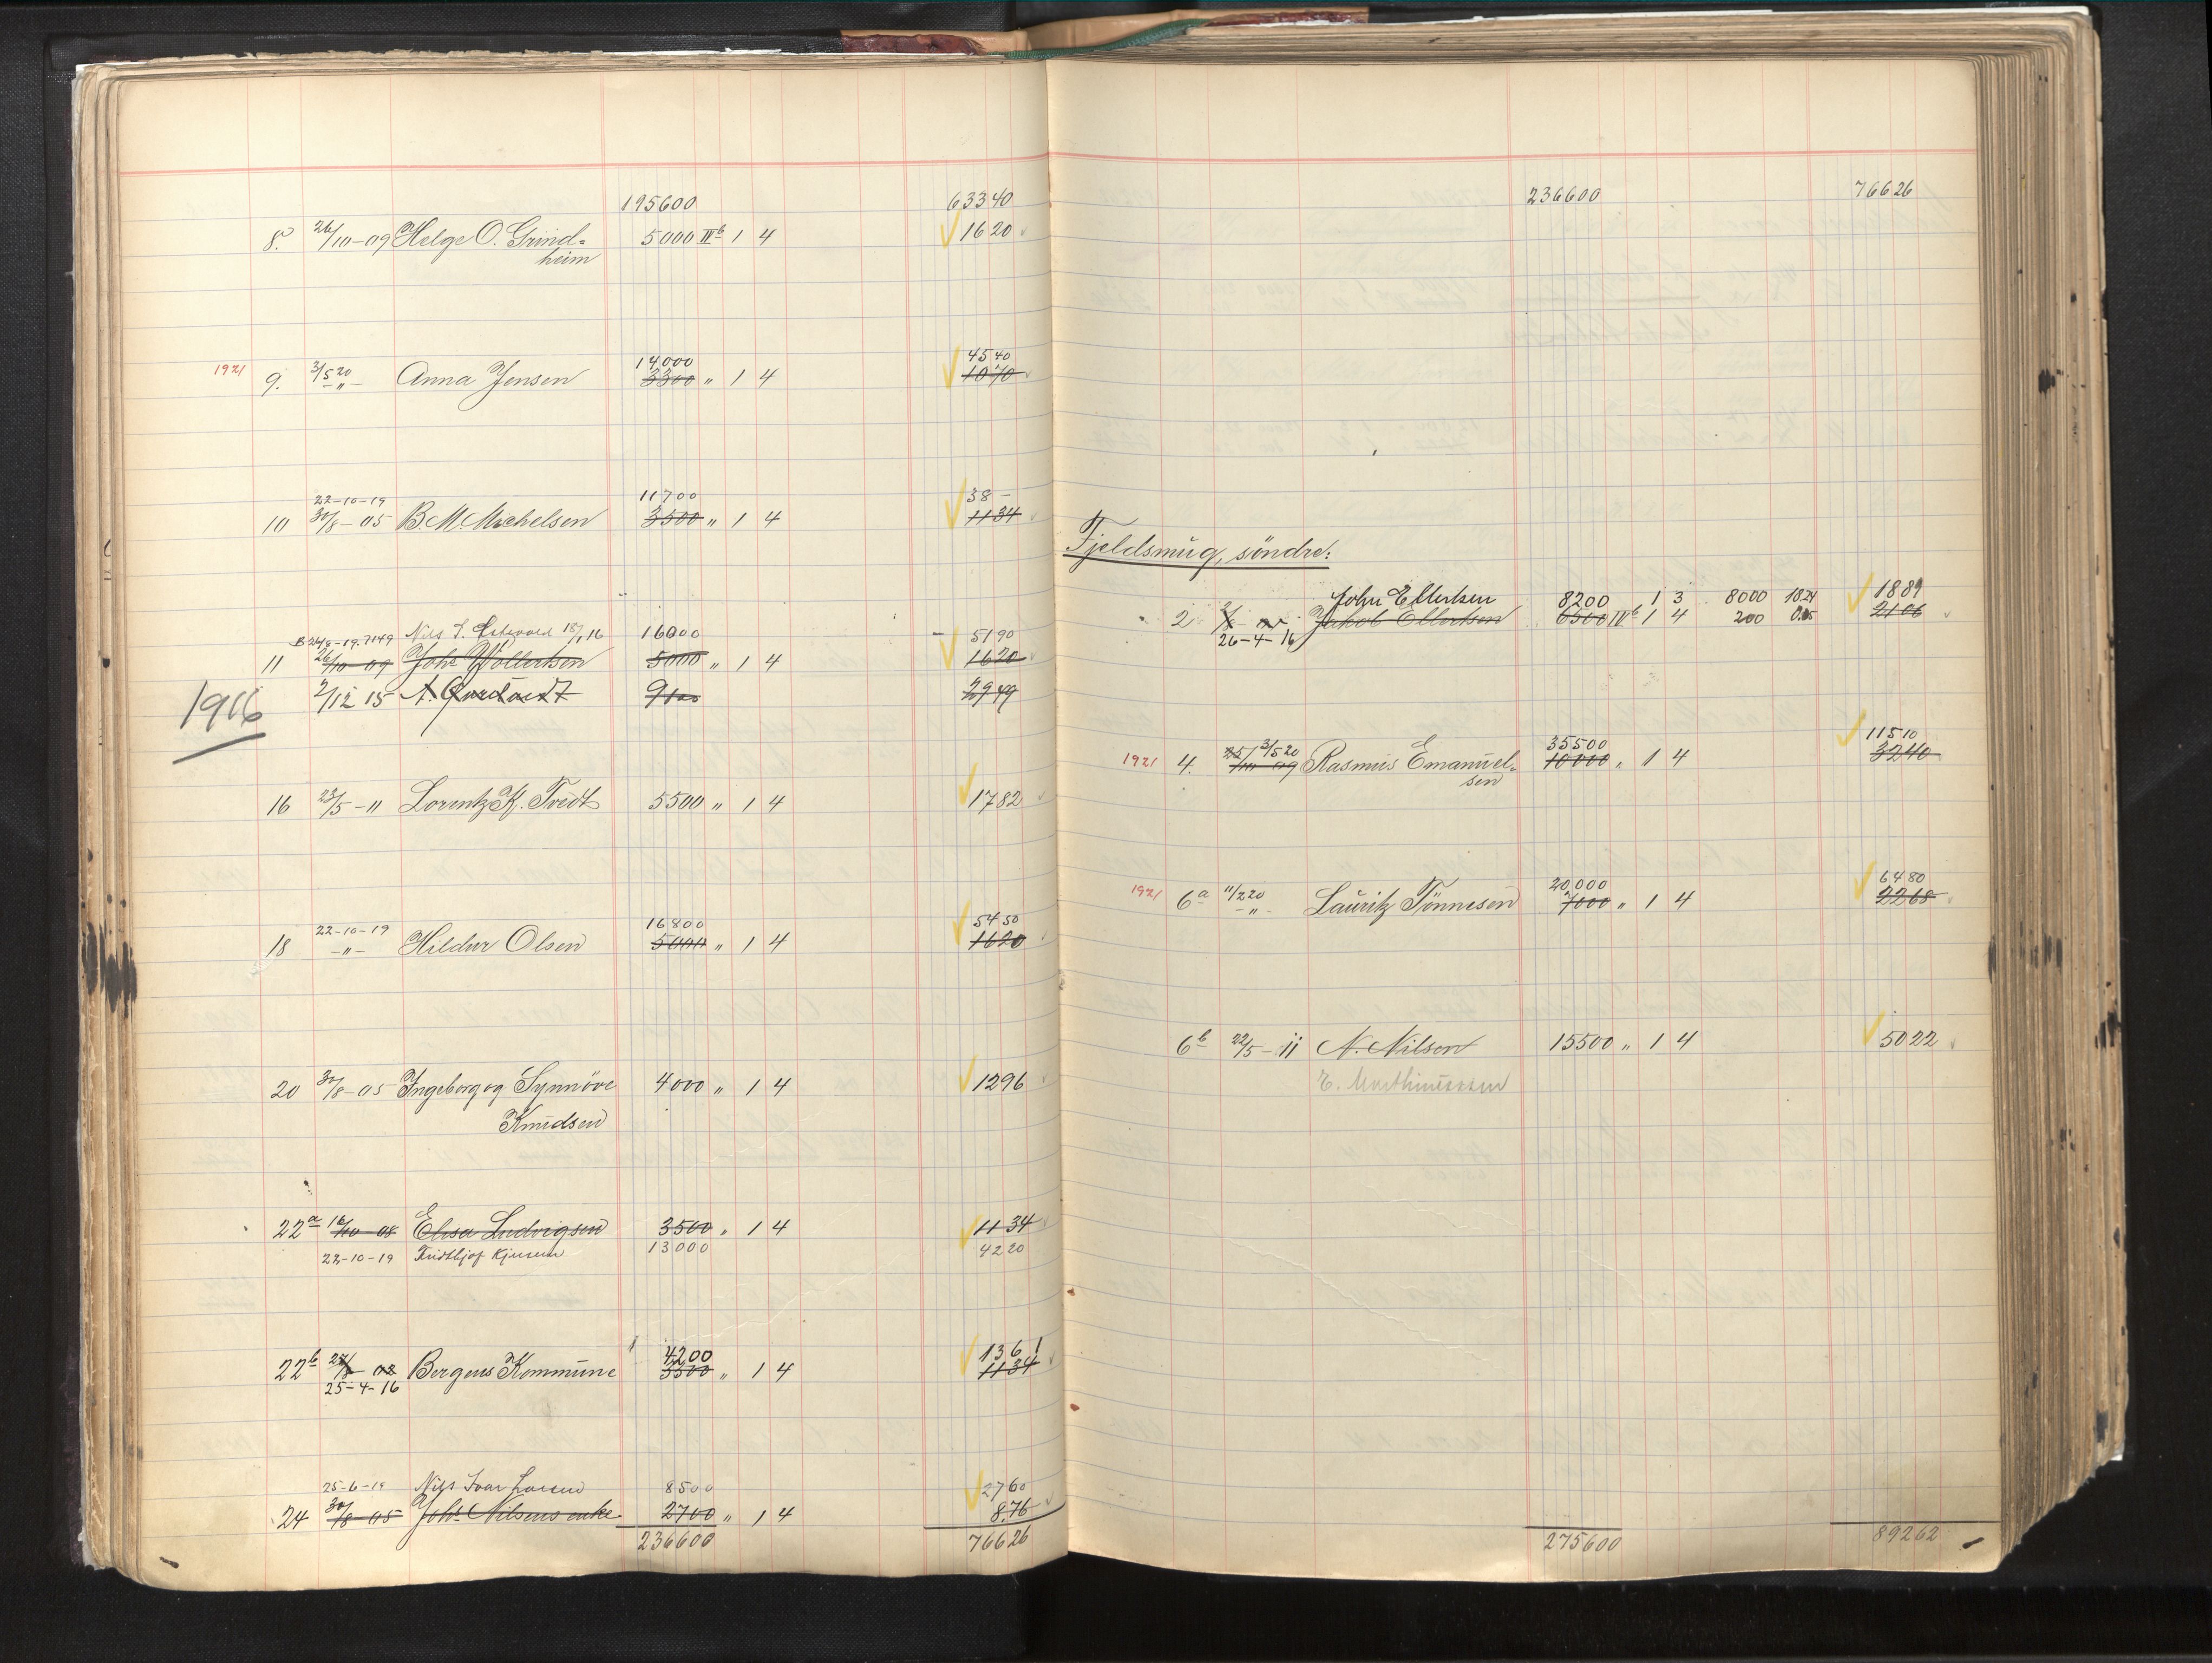 195600 63340
8. 26/10-09 Helge O. Grind- 5000 IIIb 1 4 1620
heim
14000 4540
1921 9. 3/5 20 Anna Jensen 3300 " 1 4 1070
-"-
22-10-19 11700 38 -
10 30/8-05 B. M. Michelsen 3500 " 1 4 1134
Nils 18/1 16 16000 5190
11 26/10-09 Johs Wollertsen 5000 " 1 4 1620
2/12 15 9100 2949
1916
16 23/5-11 Lorentz K. Tvedt 5500 " 1 4 1782
22-10-19 16800 5450
18 -"- Hildur Olsen 5000 " 1 4 1620
20 30/8-05 Ingeborg og Synnöve 4000 " 1 4 1296
Knudsen
22a 16/10-08 Elisa Ludvigsen 3500 " 1 4 1134
22-10-19 13000 4220
4200 1361
22b Bergens Kommune 3500 " 1 4 1134
25-4-16
25-6-19 Nils Ivar Larsen 8500 2760
24 30/8-05 Johs Nilsens enke 2700 " 1 4 8.76
236600 76626
236600 76626
Fjeldsmug, söndre:
John Ellertsen 8200 1 3 8000 1824 1889
2 Jakob Ellertsen 6500 IVb 1 4 200 0.65 2106
26-4-16
3/5 20 35500 11510
1921 4. 25/10-09 Rasmus Emanuel- 10000 " 1 4 3240
sen
20000 6480
1921 6a 11/2 20 Lauritz Tönnesen 7000 " 1 4 2268
-"-
6b 22/5-11 N. Nilsen 15500 " 1 4 5022
E. Marthinussen
275600 89262